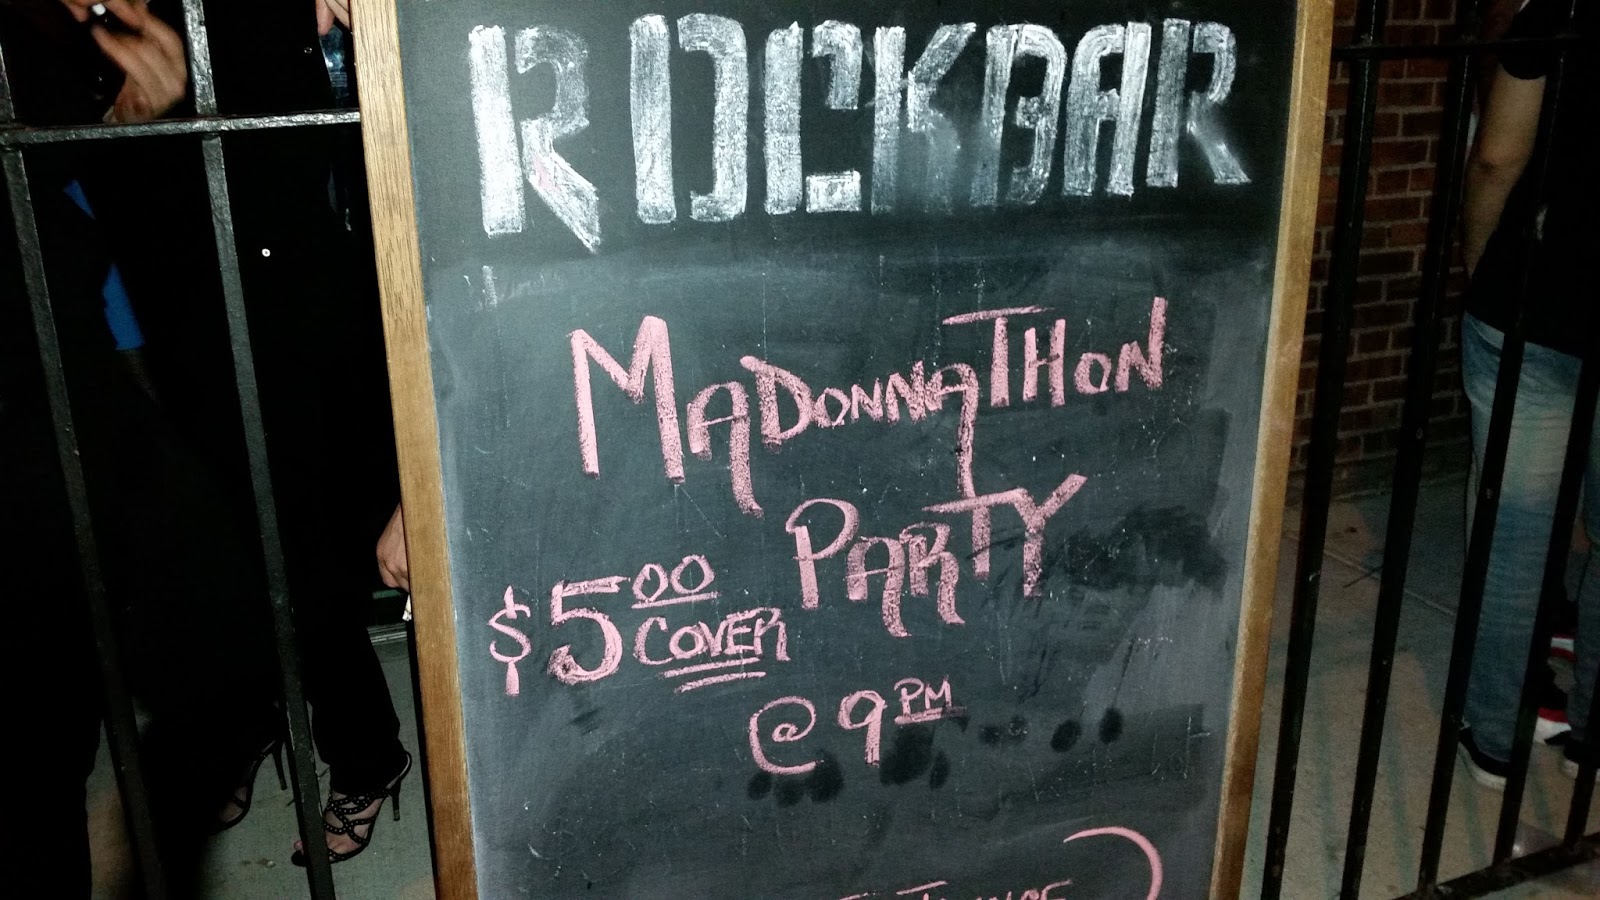 ROCKBAR
MADONNATHON
PARTY
$5.00 COVER
@ 9PM